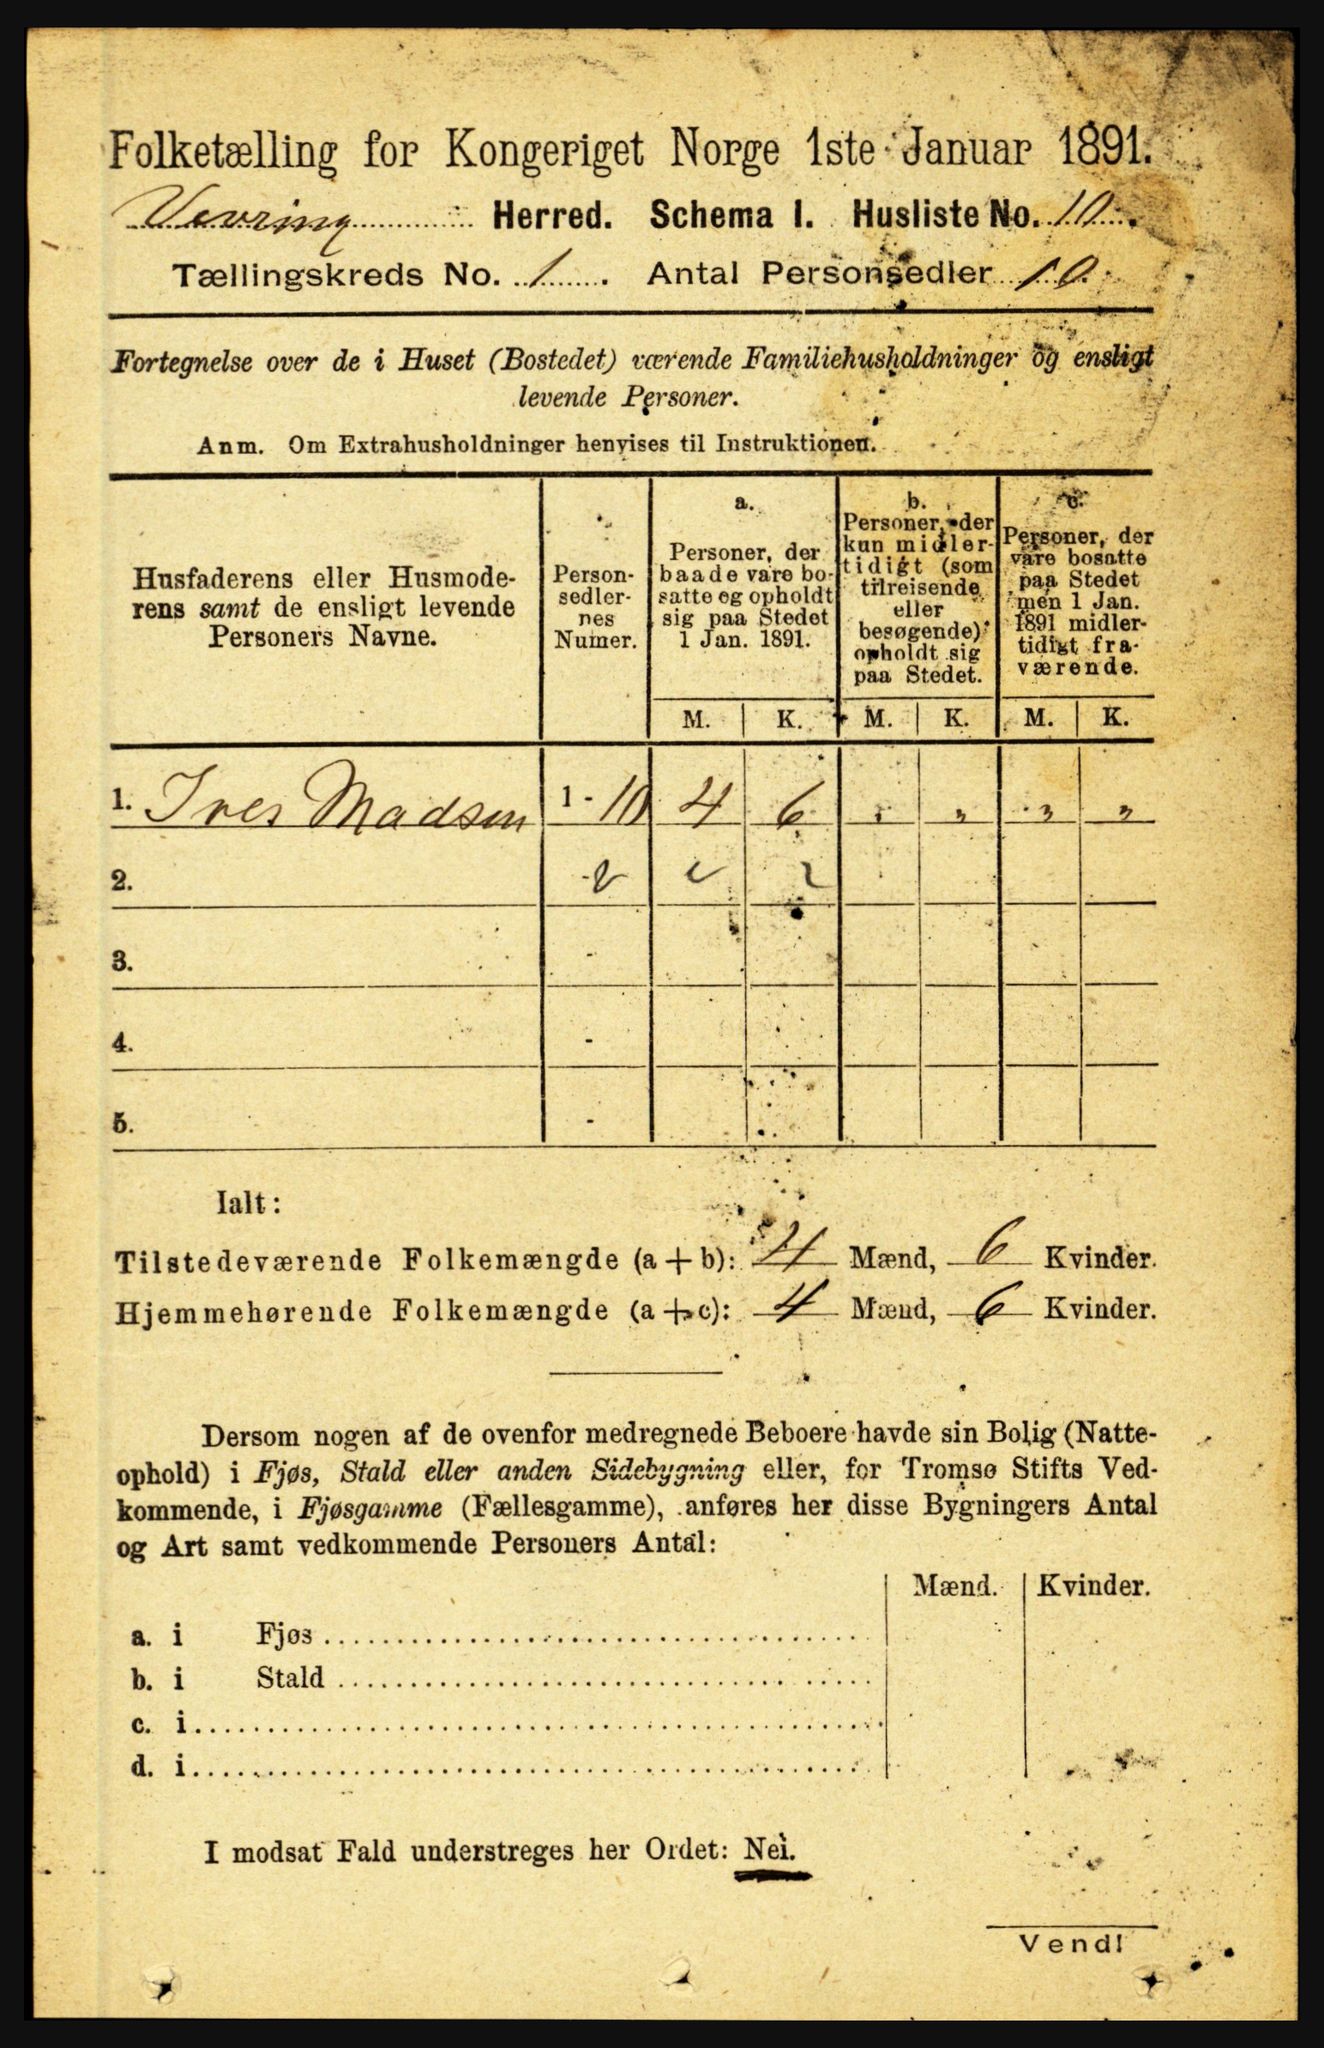 Folketælling for Kongeriget Norge 1ste Januar 1891.
Vevring Herred. Schema I. Husliste No. 10.
Tællingskreds No. 1. Antal Personsedler 10.
Fortegnelse over de i Huset (Bostedet) værende Familiehusholdninger og ensligt
levende Personer.
Anm. Om Extrahusholdninger henvises til Instruktionen.
Husfaderens eller Husmode-
rens samt de ensligt levende
Personers Navne.
Person-
sedler-
nes
Numer.
a.
Personer, der
baade vare bo-
satte og opholdt
sig paa Stedet
1 Jan. 1891.
b.
Personer, der
kun midler-
tidigt (som
tilreisende
eller
besøgende)
opholdt sig
paa Stedet.
c.
Personer, der
vare bosatte
paa Stedet
men 1 Jan.
1891 midler-
tidigt fra-
værende.
M. K. M. K. M. K.
1. Iver Madsen 1 - 10 4 6 " " " "
2. -
3. -
4. -
5. -
Ialt:
Tilstedeværende Folkemængde (a + b): 4 Mænd, 6 Kvinder.
Hjemmehørende Folkemængde (a + c): 4 Mænd, 6 Kvinder.
Dersom nogen af de ovenfor medregnede Beboere havde sin Bolig (Natte-
ophold) i Fjøs, Stald eller anden Sidebygning eller, for Tromsø Stifts Ved-
kommende, i Fjøsgamme (Fællesgamme), anføres her disse Bygningers Antal
og Art samt vedkommende Personers Antal:
Mænd. Kvinder.
a. i Fjøs
b. i Stald
c. i
d. i
I modsat Fald understreges her Ordet: Nei.
Vend!